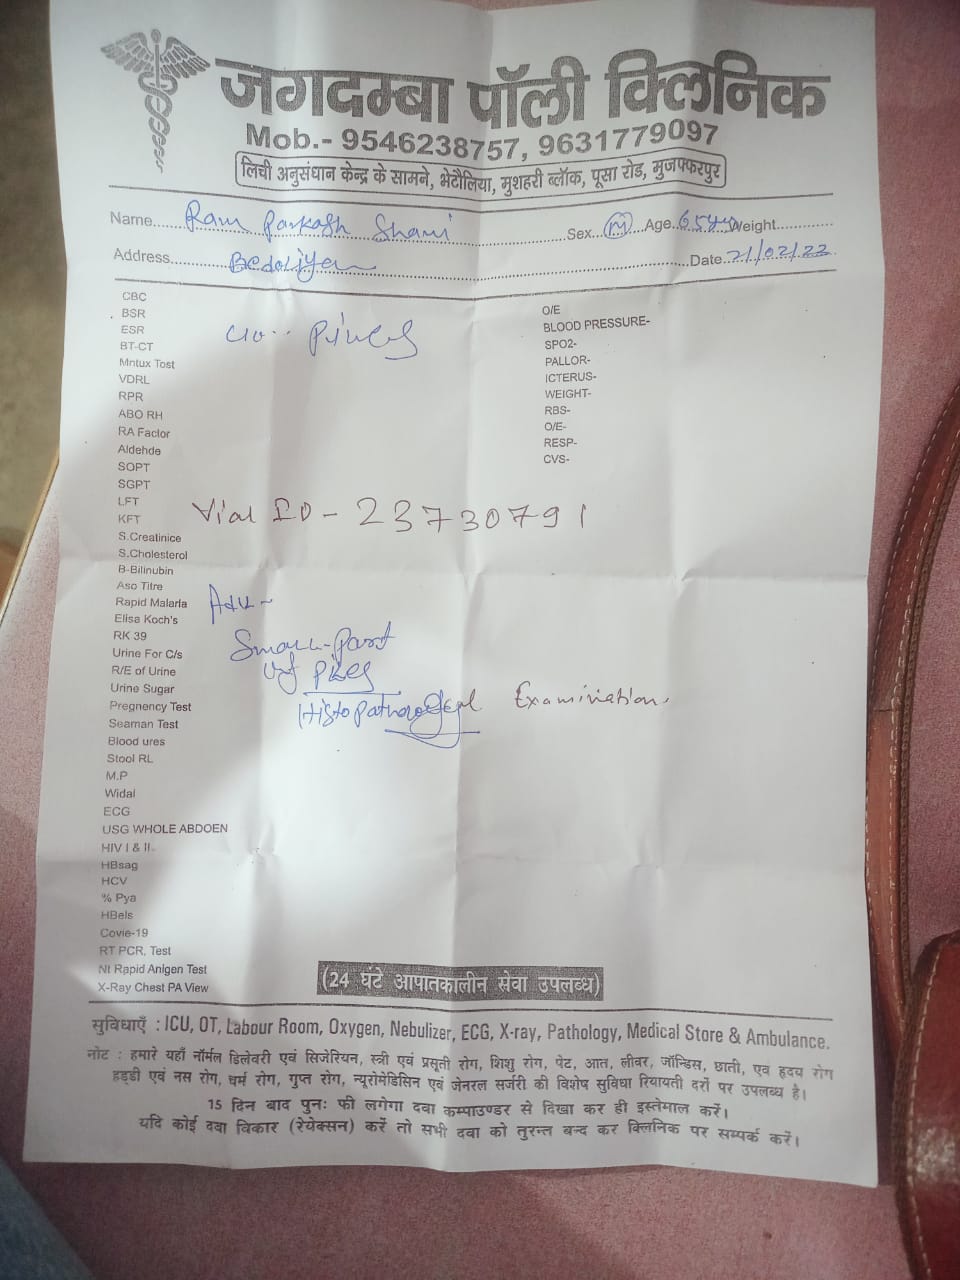 जगदम्बा पॉली क्लिनिक
Mob.- 9546238757, 9631779097
लिची अनुसंधान केन्द्र के सामने, भेटौलिया, मुशहरी ब्लॉक, पूसा रोड, मुजफ्फरपुर
Name Ram Parkash Shani Sex (M) Age 65 Weight
Address Bedoliya Date 21/02/22
CBC
BSR
ESR
BT-CT
Mntux Tost
VDRL
RPR
ABO RH
RA Faclor
Aldehde
SOPT
SGPT
LFT
KFT
S.Creatinice
S.Cholesterol
B-Bilinubin
Aso Titre
Rapid Malarla
Elisa Koch's
RK 39
Urine For C/s
R/E of Urine
Urine Sugar
Pregnency Test
Seaman Test
Blood ures
Stool RL
M.P
Widal
ECG
USG WHOLE ABDOEN
HIV I & II
HBsag
HCV
% Pya
HBels
Covie-19
RT PCR, Test
Nt Rapid Anigen Test
X-Ray Chest PA View
O/E
BLOOD PRESSURE-
SPO2-
PALLOR-
ICTERUS-
WEIGHT-
RBS-
O/E-
RESP-
CVS-
c/o
Vial ID - 23730791
Adv -
Small Part
of Piles
Histopathological Examination.
(24 घंटे आपातकालीन सेवा उपलब्ध)
सुविधाएँ : ICU, OT, Labour Room, Oxygen, Nebulizer, ECG, X-ray, Pathology, Medical Store & Ambulance.
नोट : हमारे यहाँ नॉर्मल डिलेवरी एवं सिजेरियन, स्त्री एवं प्रसूती रोग, शिशु रोग, पेट, आत, लीवर, जॉन्डिस, छाती, एव हृदय रोग
हड्डी एवं नस रोग, धर्म रोग, गुप्त रोग, न्यूरोमेडिसिन एवं जेनरल सर्जरी की विशेष सुविधा रियायती दरों पर उपलब्ध है।
15 दिन बाद पुनः फी लगेगा दवा कम्पाउण्डर से दिखा कर ही इस्तेमाल करें।
यदि कोई दवा विकार (रेयेक्सन) करें तो सभी दवा को तुरन्त बन्द कर क्लिनिक पर सम्पर्क करें।